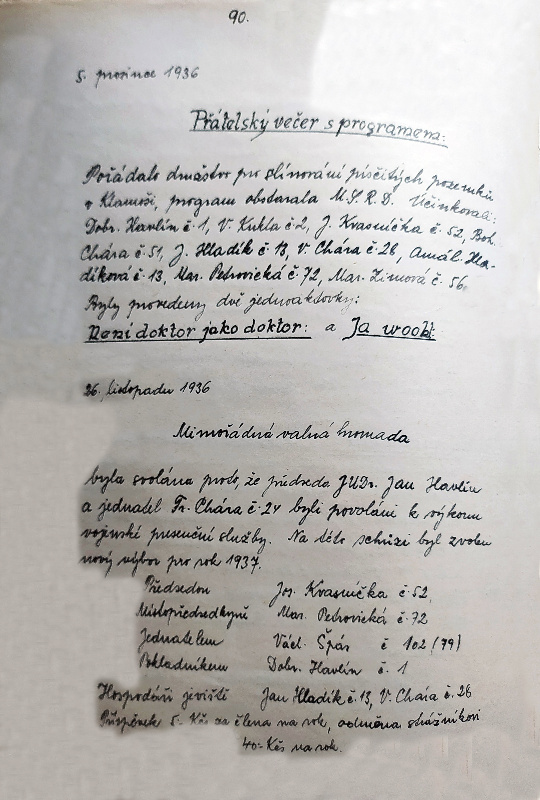 90.
5. prosince 1936
Přátelský večer s programem:
Pořádalo družstvo pro slínování písčitých pozemků
v Klamoši, program obstarala M.S.R.D. Účinkovali:
Dobr. Havlín č 1, V. Kukla č 2, J. Krasnička č. 52, Boh.
Chára č. 51, J. Hladík č. 13, V. Chára č. 26, Amál. Hla-
díková č. 13, Mar. Petrovická č. 72, Mar. Zimová č. 56.
Byly provedeny dvě jednoaktovky:
Není doktor jako doktor: a Ja
26. listopadu 1936
Mimořádná valná hromada
byla svolána proto, že předseda JUDr. Jan Havlín
a jednatel Fr. Chára č. 24 byli povoláni k výkonu
vojenské presenční služby. Na této schůzi byl zvolen
nový výbor pro rok 1937.
Předsedou Jos. Krasnička č. 52.
Místopředsedkyně Mar. Petrovická č. 72
Jednatelem Václ. Špás č 102 (79)
Pokladníkem Dobr. Havlín č. 1
Hospodáři jeviště Jan Hladík č. 13, V. Chára č. 26
Příspěvek 5.- Kčs za člena na rok, odměna strážníkovi
40.- Kčs na rok.